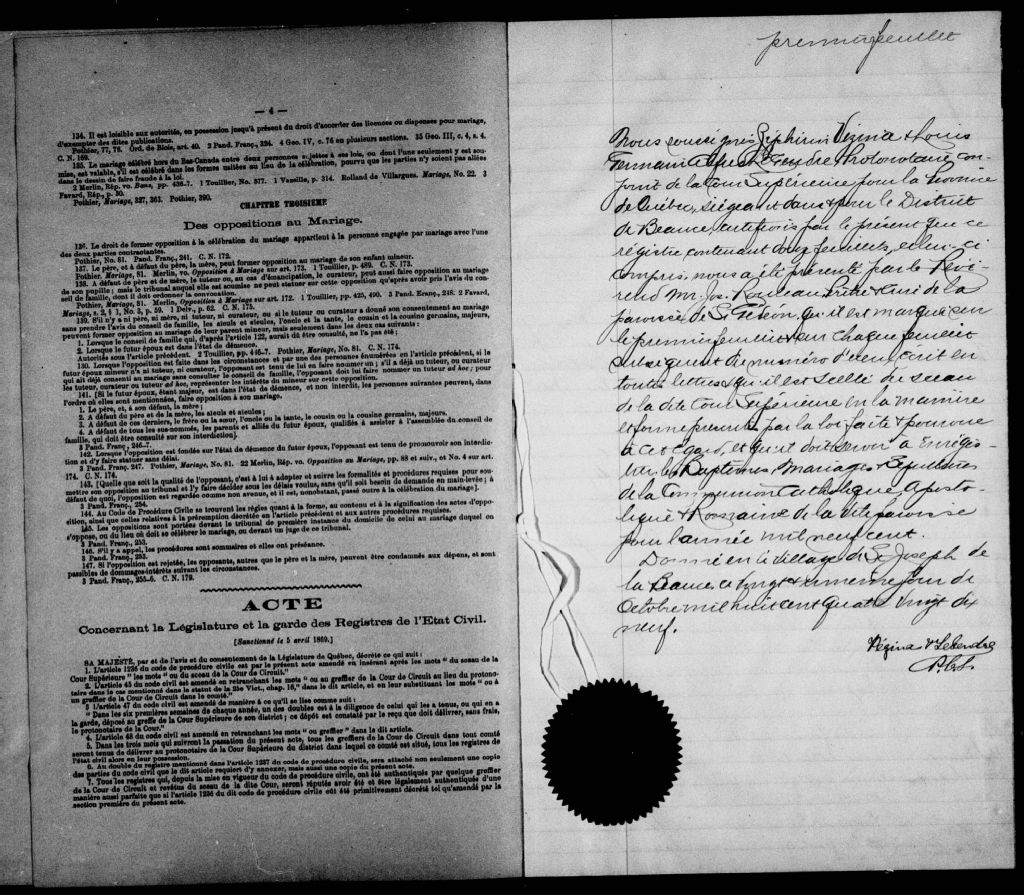 — 4 —
134. Il est loisible aux autorités, en possession jusqu'à présent du droit d'accorder des licences ou dispenses pour mariage,
d'exempter des dites publications.
Pothier, 77, 78. Ord. de Blois, art. 40. 2 Pand. Franç., 324. 4 Geo. IV, c. 76 en plusieurs sections. 35 Geo. III, c. 4, s. 4.
C. N. 169.
135. Le mariage célébré hors du Bas-Canada entre deux personnes sujettes à ses lois, ou dont l'une seulement y est sou-
mise, est valable, s'il est célébré dans les formes usitées au lieu de la célébration, pourvu que les parties n'y soient pas allées
dans le dessin de faire fraude à la loi.
2 Merlin, Rép. vo. Bans, pp. 436-7. 1 Touillier, No. 577. 1 Vazeille, p. 314. Rolland de Villargues. Mariage, No. 22. 3
Favard, Rép., p. 50.
Pothier, Mariage, 327, 363. Pothier, 390.
CHAPITRE TROISIEME
Des oppositions au Mariage.
136. Le droit de former opposition à la célébration du mariage appartient à la personne engagée par mariage avec l'une
des deux parties contractantes.
Pothier, No. 81. Pand. Franç., 241. C. N. 172.
137. Le père, et à défaut du père, la mère, peut former opposition au mariage de son enfant mineur.
Pothier. Mariage, 81. Merlin, vo. Opposition à Mariage sur art. 173. 1 Touillier, p. 489. C. N. 173.
138. A défaut de père et de mère, le tuteur ou, au cas d'émancipation, le curateur, peut aussi faire opposition au mariage
de son pupille; mais le tribunal auquel elle est soumise ne peut statuer sur cette opposition qu'après avoir pris l'avis du con-
seil de famille, dont il doit ordonner la convocation.
Pothier, Mariage, 81. Merlin, Opposition à Mariage sur art. 172. 1 Touillier, pp. 425, 490. 3 Pand. Franç., 248. 2 Favard,
Mariage, s. 2, § 1, No. 3, p. 59. 1 Delv., p. 62. C. N. 175.
139. S'il n'y a ni père, ni mère, ni tuteur, ni curateur, ou si le tuteur ou curateur a donné son consentement au mariage
sans prendre l'avis du conseil de famille, les aïeuls et aïeules, l'oncle et la tante, le cousin et la cousine germains, majeurs,
peuvent former opposition au mariage de leur parent mineur, mais seulement dans les deux cas suivants :
1. Lorsque le conseil de famille qui, d'après l'article 122, aurait dû être consulté, ne l'a pas été;
2. Lorsque le futur époux est dans l'état de démence.
Autorités sous l'article précédent. 2 Touillier, pp. 446-7. Pothier, Mariage, No. 81. C. N. 174.
130. Lorsque l'opposition est faite dans les circonstances et par une des personnes énumérées en l'article précédent, si le
futur époux mineur n'a ni tuteur, ni curateur, l'opposant est tenu de lui en faire nommer un; s'il a déjà un tuteur, ou curateur
qui ait déjà consenti au mariage sans consulter le conseil de famille, l'opposant doit lui faire nommer un tuteur ad hoc; pour
les tuteur, curateur ou tuteur ad hoc, représenter les intérêts du mineur sur cette opposition.
141. [Si le futur époux, étant majeur, est dans l'état de démence, et non interdit, les personnes suivantes peuvent, dans
l'ordre où elles sont mentionnées, faire opposition à son mariage.
1. Le père, et, à son défaut, la mère;
2. A défaut du père et de la mère, les aïeuls et aïeules;
3. A défaut de ces derniers, le frère ou la sœur, l'oncle ou la tante, le cousin ou la cousine germains, majeurs.
4. A défaut de tous les sus-nommés, les parents et alliés du futur époux, qualifiés à assister à l'assemblée du conseil de
famille, qui doit être consulté sur son interdiction].
3 Pand. Franç., 246-7.
142. Lorsque l'opposition est fondée sur l'état de démence du futur époux, l'opposant est tenu de promouvoir son interdic-
tion et d'y faire statuer sans délai.
3 Pand. Franç. 247. Pothier, Mariage, No. 81. 22 Merlin, Rép. vo. Opposition au Mariage, pp. 88 et suiv., et No. 4 sur art.
174. C. N. 174.
143. [Quelle que soit la qualité de l'opposant, c'est à lui à adopter et suivre les formalités et procédures requises pour sou-
mettre son opposition au tribunal et l'y faire décider sous les délais voulus, sans qu'il soit besoin de demande en main-levée; à
défaut de quoi, l'opposition est regardée comme non avenue, et il est, nonobstant, passé outre à la célébration du mariage].
3 Pand. Franç., 254.
144. Au Code de Procédure Civile se trouvent les règles quant à la forme, au contenu et à la signification des actes d'oppo-
sition, ainsi que celles relatives à la péremption décrétée en l'article précédent et aux autres procédures requises.
145. Les oppositions sont portées devant le tribunal de première instance du domicile de celui au mariage duquel on
s'oppose, ou du lieu où doit se célébrer le mariage, ou devant un juge de ce tribunal.
3 Pand. Franç., 253.
146. S'il y a appel, les procédures sont sommaires et elles ont préséance.
3 Pand. Franç., 253.
147. Si l'opposition est rejetée, les opposants, autres que le père et la mère, peuvent être condamnés aux dépens, et sont
passibles de dommages-intérêts suivant les circonstances.
3 Pand. Franç., 255-6. C. N. 179.
ACTE
Concernant la Législature et la garde des Registres de l'Etat Civil.
[Sanctionné le 5 avril 1869.]
SA MAJESTÉ, par et de l'avis et du consentement de la Législature de Québec, décrète ce qui suit :
1. L'article 1236 du code de procédure civile est par le présent acte amendé en insérant après les mots " du sceau de la
Cour Supérieure " les mots " ou du sceau de la Cour de Circuit."
2. L'article 45 du code civil est amendé en retranchant les mots " ou au greffier de la Cour de Circuit au lieu du protono-
taire dans le cas mentionné dans le statut de la 25e Vict., chap. 16," dans le dit article, et en leur substituant les mots " ou à
un greffier de la Cour de Circuit dans le comté."
3 L'article 47 du code civil est amendé de manière à ce qu'il se lise comme suit :
" Dans les six premières semaines de chaque année, un des doubles est à la diligence de celui qui les a tenus, ou qui en a
la garde, déposé au greffe de la Cour Supérieure de son district; ce dépôt est constaté par le reçu que doit délivrer, sans frais,
le protonotaire de la Cour."
4. L'article 48 du code civil est amendé en retranchant les mots " ou greffier " dans le dit article.
5. Dans les trois mois qui suivront la passation du présent acte, tous les greffiers de la Cour de Circuit dans tout comté
seront tenus de délivrer au protonotaire de la Cour Supérieure du district dans lequel ce comté est situé, tous les registres de
l'état civil alors en leur possession.
6. Au double du registre mentionné dans l'article 1237 du code de procédure civile, sera attaché non seulement une copie
des parties du code civil que le dit article requiert d'y annexer, mais aussi une copie du présent acte.
7. Tous les registres qui, depuis la mise en vigueur du code de procédure civile, ont été authentiqués par quelque greffier
de la Cour de Circuit et revêtus du sceau de la dite Cour, seront réputés avoir été et être légalement authentiqués d'une
manière aussi parfaite que si l'article 1236 du dit code de procédure civile eût été primitivement décrété tel qu'amendé par la
section première du présent acte.
premier feuillet
Nous soussignés Zéphirin Vézina & Louis
Philippe LeGendre Protonotaire con-
joint de la Cour Supérieure pour la Province
de Québec, siégeant dans & pour le District
de Beauce, certifions par le présent que ce
régistre contenant douze feuillets, celui-ci
compris, nous a été présenté par le Révé-
rend Mr. Jos. Rouleau Prêtre & curé de la
paroisse de St. Gédéon, qu'il est marqué sur
le premier feuillet & sur chaque feuillet
subséquent du numéro d'icelui, écrit en
toutes lettres & qu'il est scellé du sceau
de la dite Cour Supérieure en la manière
et forme prescrite par la loi faite & pourvue
à cet égard, et qu'il doit servir à Enrégis-
trer les Baptêmes, Mariages & Sépultures
de la Communion Catholique, Aposto-
lique & Romaine de la dite paroisse
pour l'année mil neuf cent.
Donné en le village de St Joseph de
la Beauce ce vingt & unième jour de
Octobre mil huit cent quatre vingt dix
neuf.
Vézina & LeGendre
P.C.S.